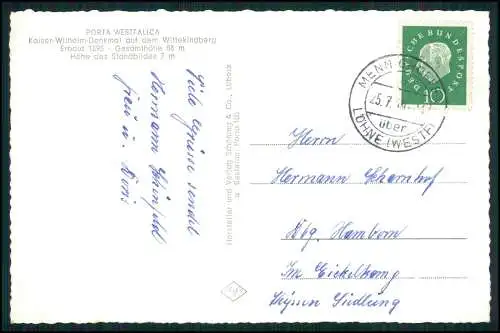 PORTA WESTFALICA
Kaiser-Wilhelm-Denkmal auf dem Wittekindberg
Erbaut 1895 - Gesamthöhe 88 m
Höhe des Standbildes 7 m
Viele Grüße sendet
Hermann
frau u. Doris
Hersteller und Verlag Schöning & Co., Lübeck
DEUTSCHE BUNDESPOST
10
25.7.
über
LÖHNE (WESTF)
Herrn
Hermann Scharnhof
Dbg. Hamborn
Im Eickelkamp
Siedlung